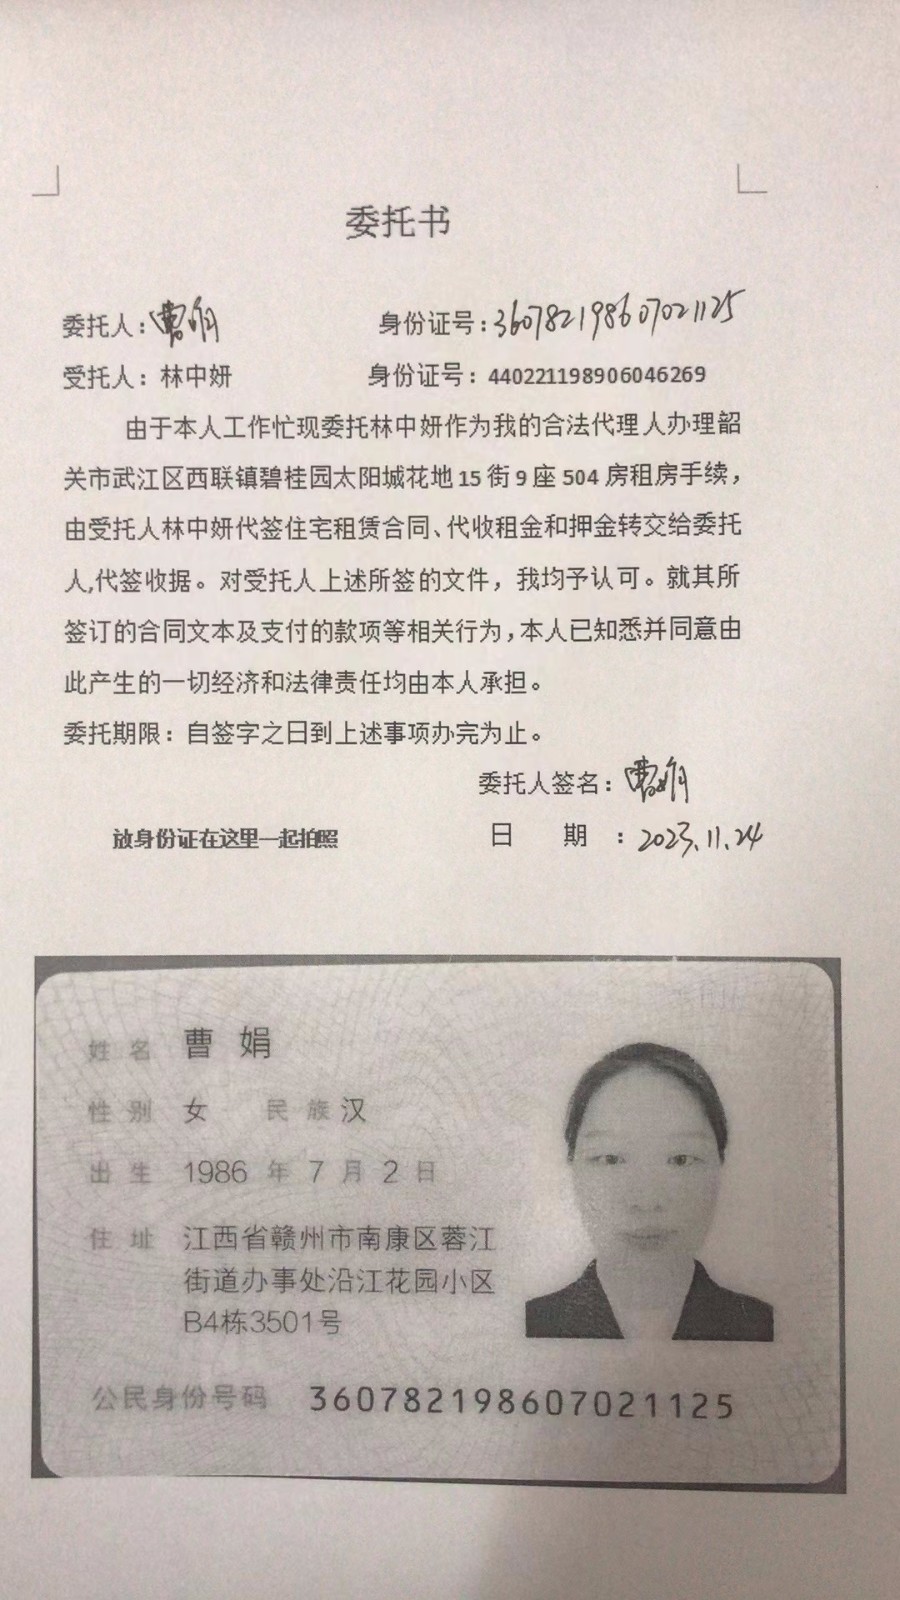 委托书
委托人：曹娟 身份证号：360782198607021125
受托人：林中妍 身份证号：440221198906046269
由于本人工作忙现委托林中妍作为我的合法代理人办理韶
关市武江区西联镇碧桂园太阳城花地15街9座504房租房手续，
由受托人林中妍代签住宅租赁合同、代收租金和押金转交给委托
人,代签收据。对受托人上述所签的文件，我均予认可。就其所
签订的合同文本及支付的款项等相关行为，本人已知悉并同意由
此产生的一切经济和法律责任均由本人承担。
委托期限：自签字之日到上述事项办完为止。
委托人签名：曹娟
放身份证在这里一起拍照 日 期 ：2023.11.24
姓名 曹娟
性别 女 民族 汉
出生 1986 年 7 月 2 日
住址 江西省赣州市南康区蓉江
街道办事处沿江花园小区
B4栋3501号
公民身份号码 360782198607021125